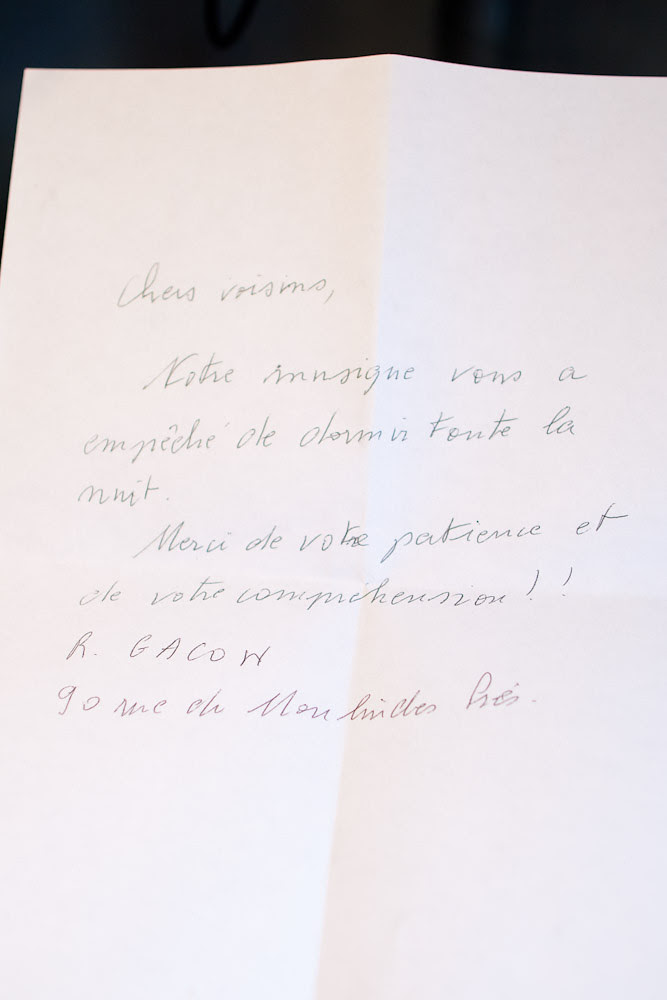 Chers voisins,
Notre musique vous a
empêché de dormir toute la
nuit.
Merci de votre patience et
de votre compréhension!!
R. GACON
90 rue du Moulin des Prés.